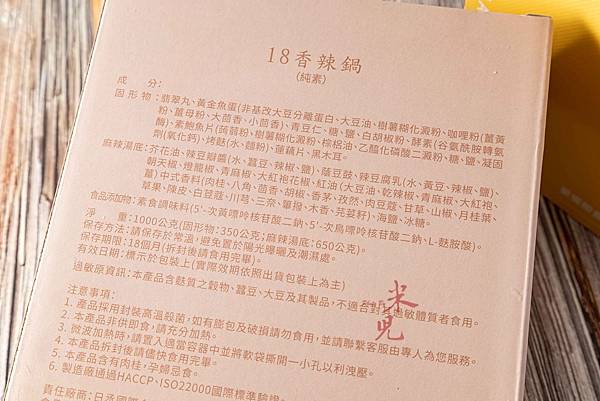 18香辣鍋
(純素)
成分:
固形物:翡翠丸、黃金魚蛋(非基改大豆分離蛋白、大豆油、樹薯糊化澱粉、咖哩粉(薑黃
粉、薑母粉、大茴香、小茴香)、青豆仁、糖、鹽、白胡椒粉、酵素(谷氨酰胺轉氨
酶)、素鮑魚片(蒟蒻粉、樹薯糊化澱粉、棕梠油、乙醯化磷酸二澱粉、糖、鹽、凝固
劑(氧化鈣)、烤麩(水、麵粉)、蓮藕片、黑木耳。
麻辣湯底:芥花油、辣豆瓣醬(水、蠶豆、辣椒、鹽)、蔭豆豉、辣豆腐乳(水、黃豆、辣椒、鹽)、
朝天椒、燈籠椒、青麻椒、大紅袍花椒、紅油(大豆油、乾辣椒、青麻椒、大紅袍、
薑)中式香料(肉桂、八角、茴香、胡椒、香茅、孜然、肉豆蔻、甘草、山椒、月桂葉、
草果、陳皮、白荳蔻、川芎、三奈、蓽撥、木香、芫荽籽)、海鹽、冰糖。
食品添加物:素食調味料(5'-次黃嘌呤核苷酸二鈉、5'-次鳥嘌呤核苷酸二鈉、L-麩酸鈉)。
淨重:1000公克(固形物:350公克;麻辣湯底:650公克)。
保存方法:請保存於常溫,避免置於陽光曝曬及潮濕處。
保存期限:18個月(拆封後請食用完畢)。
有效日期:標示於包裝上(實際效期依照出貨包裝上為主)
過敏原資訊:本產品含麩質之穀物、蠶豆、大豆及其製品,不適合對其過敏體質者食用。
注意事項:
1. 產品採用封裝高溫殺菌,如有膨包及破損請勿食用,並請聯繫客服由專人為您服務。
2. 本產品非供即食,請充分加熱。
3. 微波加熱時,請置入適當容器中並將軟袋撕開一小孔以利洩壓。
4. 本產品拆封後請儘快食用完畢。
5. 本產品含有肉桂,孕婦忌食。
6. 製造廠通過HACCP、ISO22000國際標準驗證。
責任廠商:日丞國際
米兒